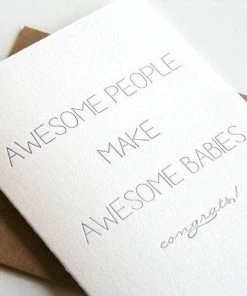 AWESOME PEOPLE
MAKE
AWESOME BABIES
congrats!